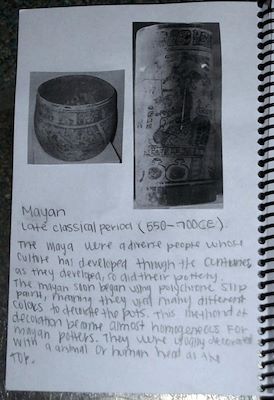 Mayan
Late classical period (550-700CE).
The Maya were a diverse people whose
culture had developed through the centuries,
as they developed, so did their pottery.
The mayan soon began using polychrome slip
paint, meaning they used many different
colors to decorate the pots. This method of
decoration became almost homogeneous for
mayan potters. They were usually decorated
with a animal or human head at the
top.